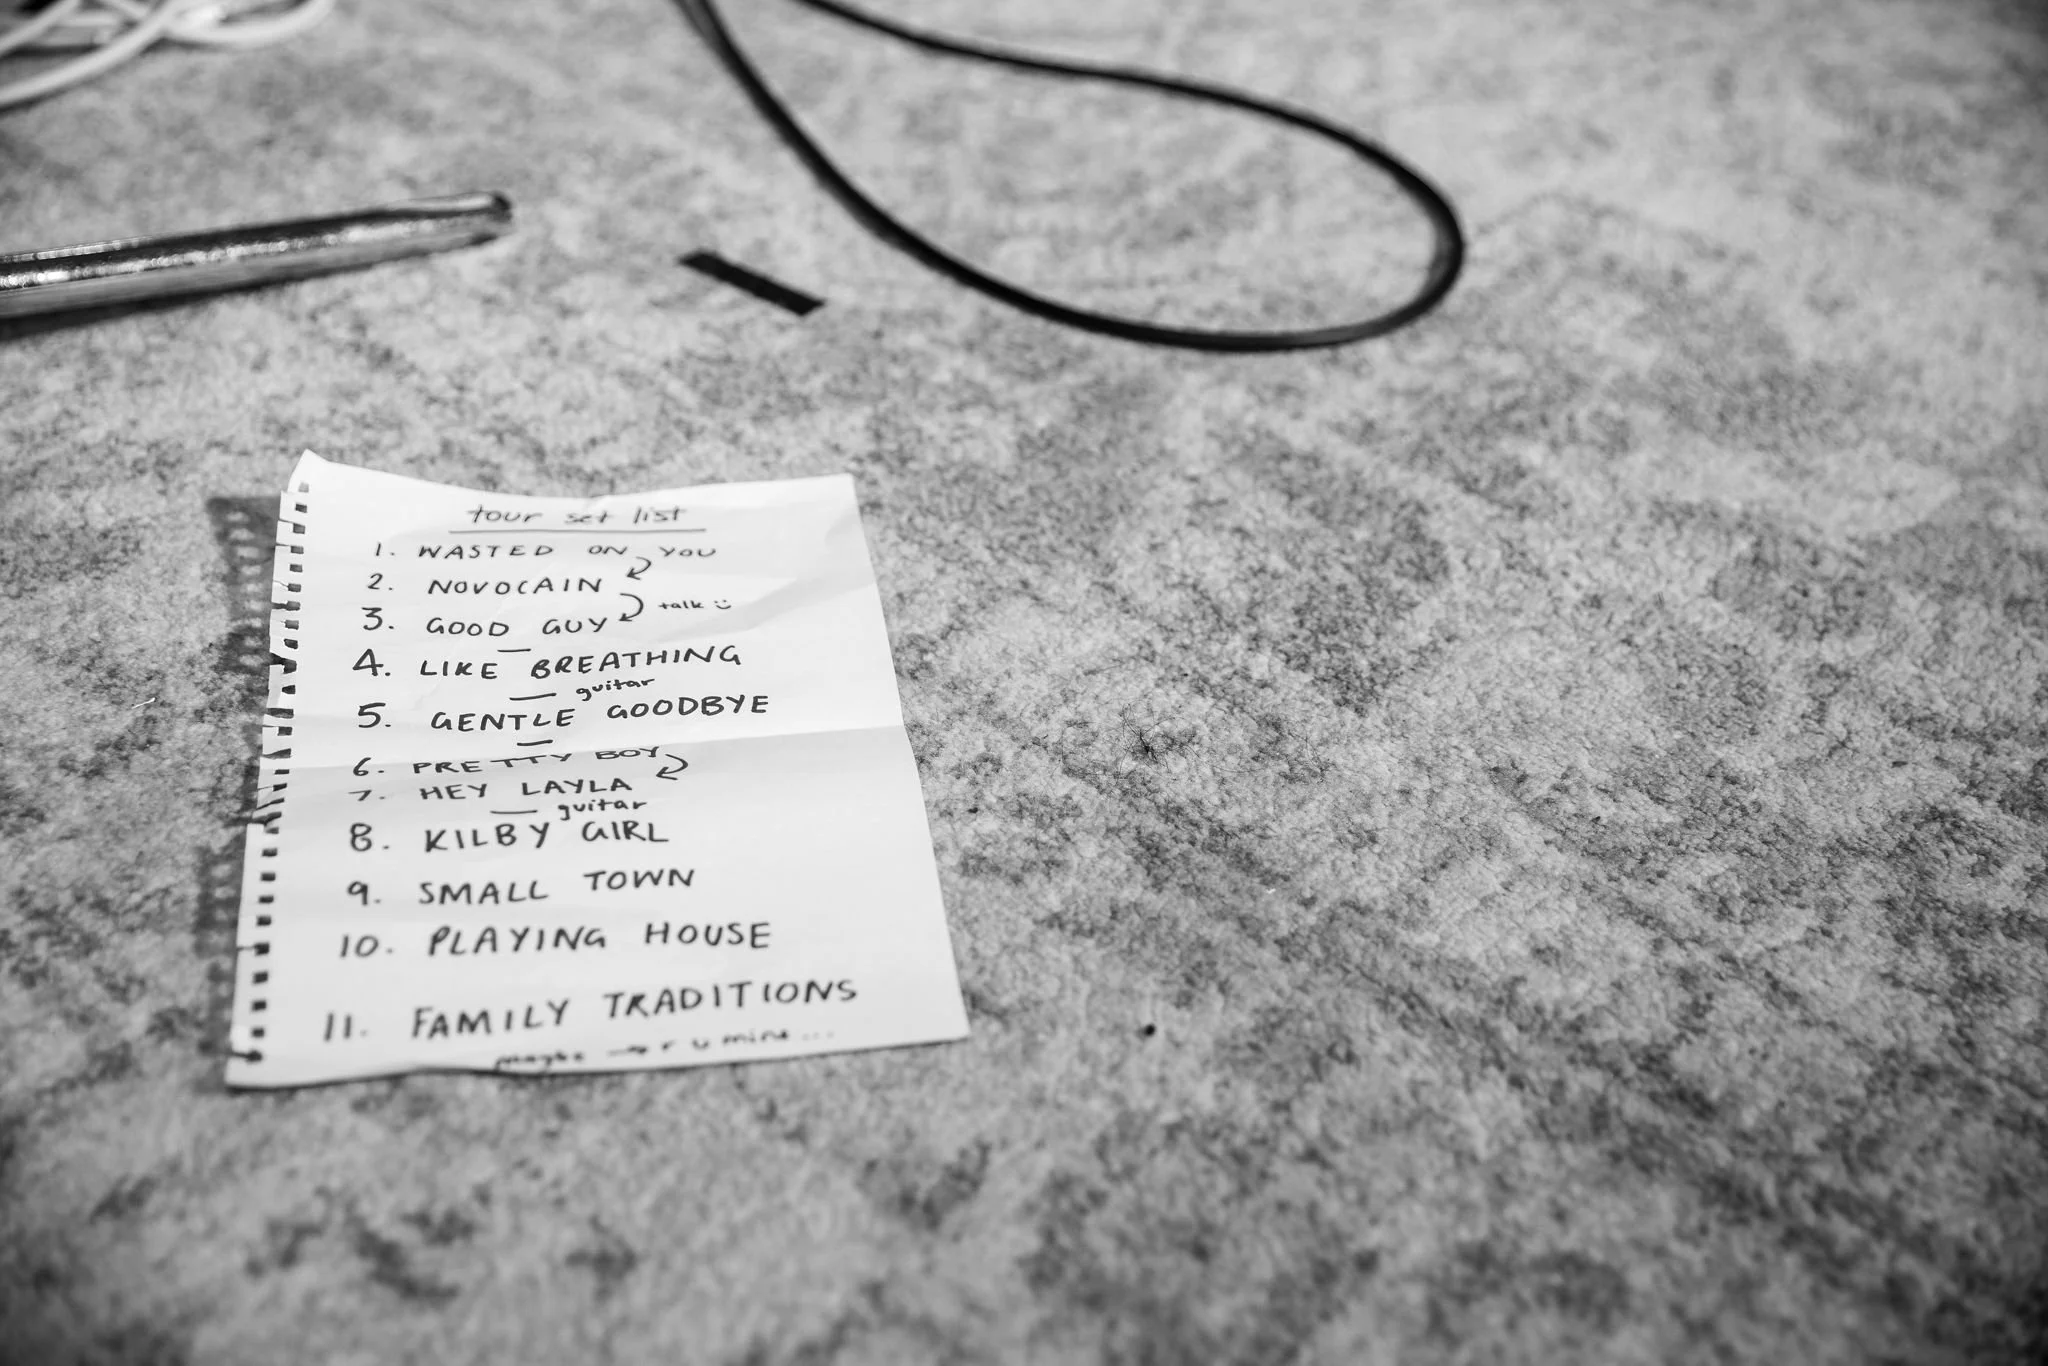 tour set list
1. WASTED ON YOU
2. NOVOCAIN
talk
3. GOOD GUY
4. LIKE BREATHING
guitar
5. GENTLE GOODBYE
6. PRETTY BOY
7. HEY LAYLA
guitar
8. KILBY GIRL
9. SMALL TOWN
10. PLAYING HOUSE
11. FAMILY TRADITIONS
maybe r u mine...